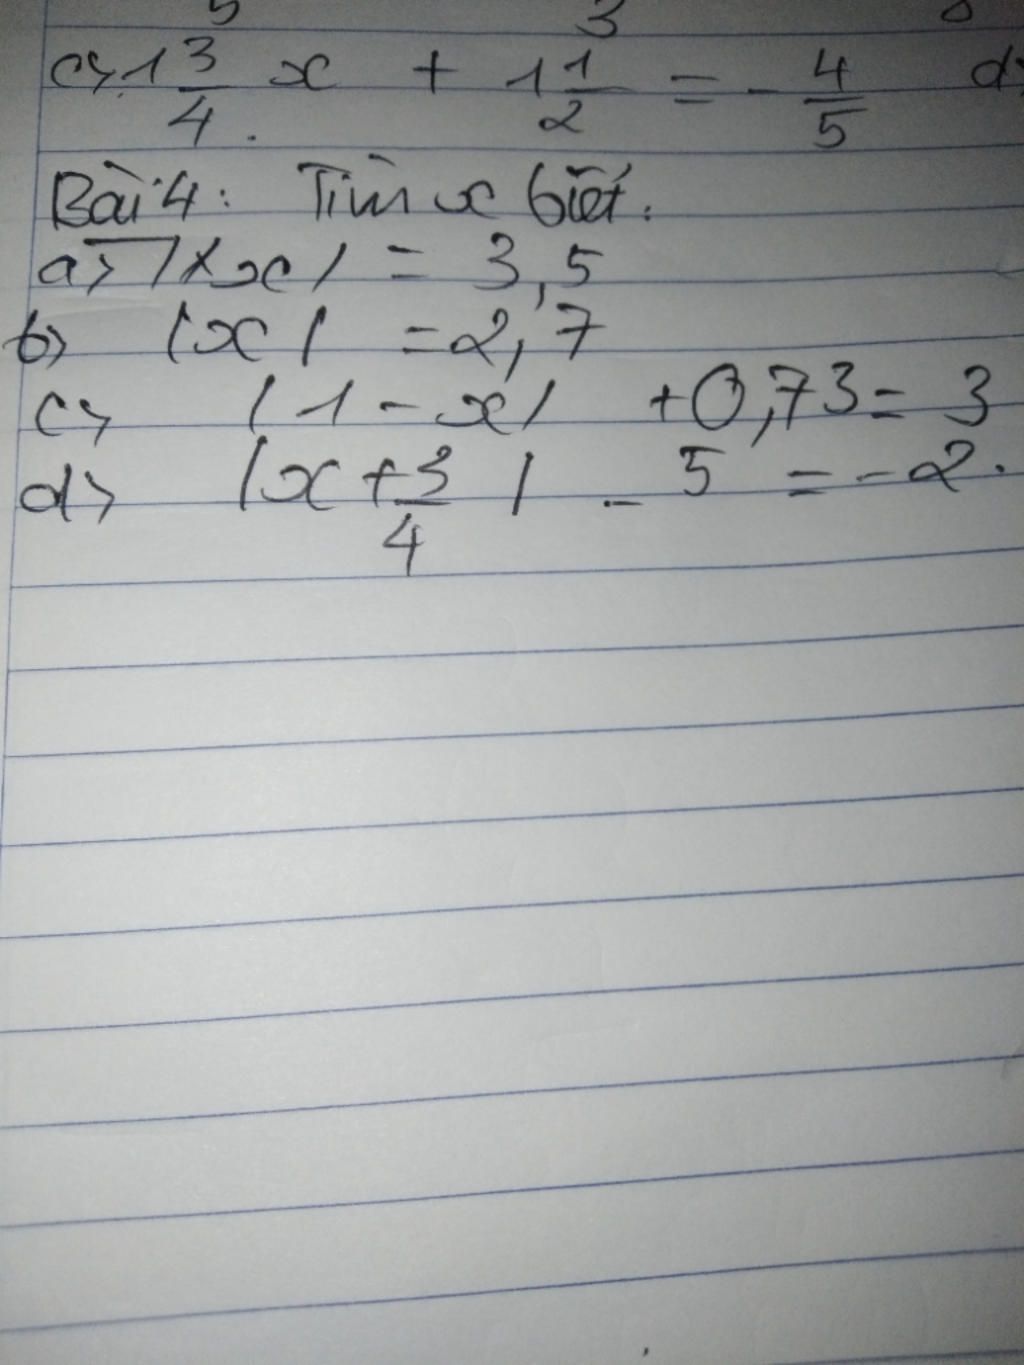 5 3
c> 1 3/4 x + 1 1/2 = - 4/5 d>
Bài 4: Tìm x biết.
a> |x| = 3,5
b> |x| = 2,7
c> |1 - x| + 0,73 = 3
d> |x + 3/4| - 5 = -2.